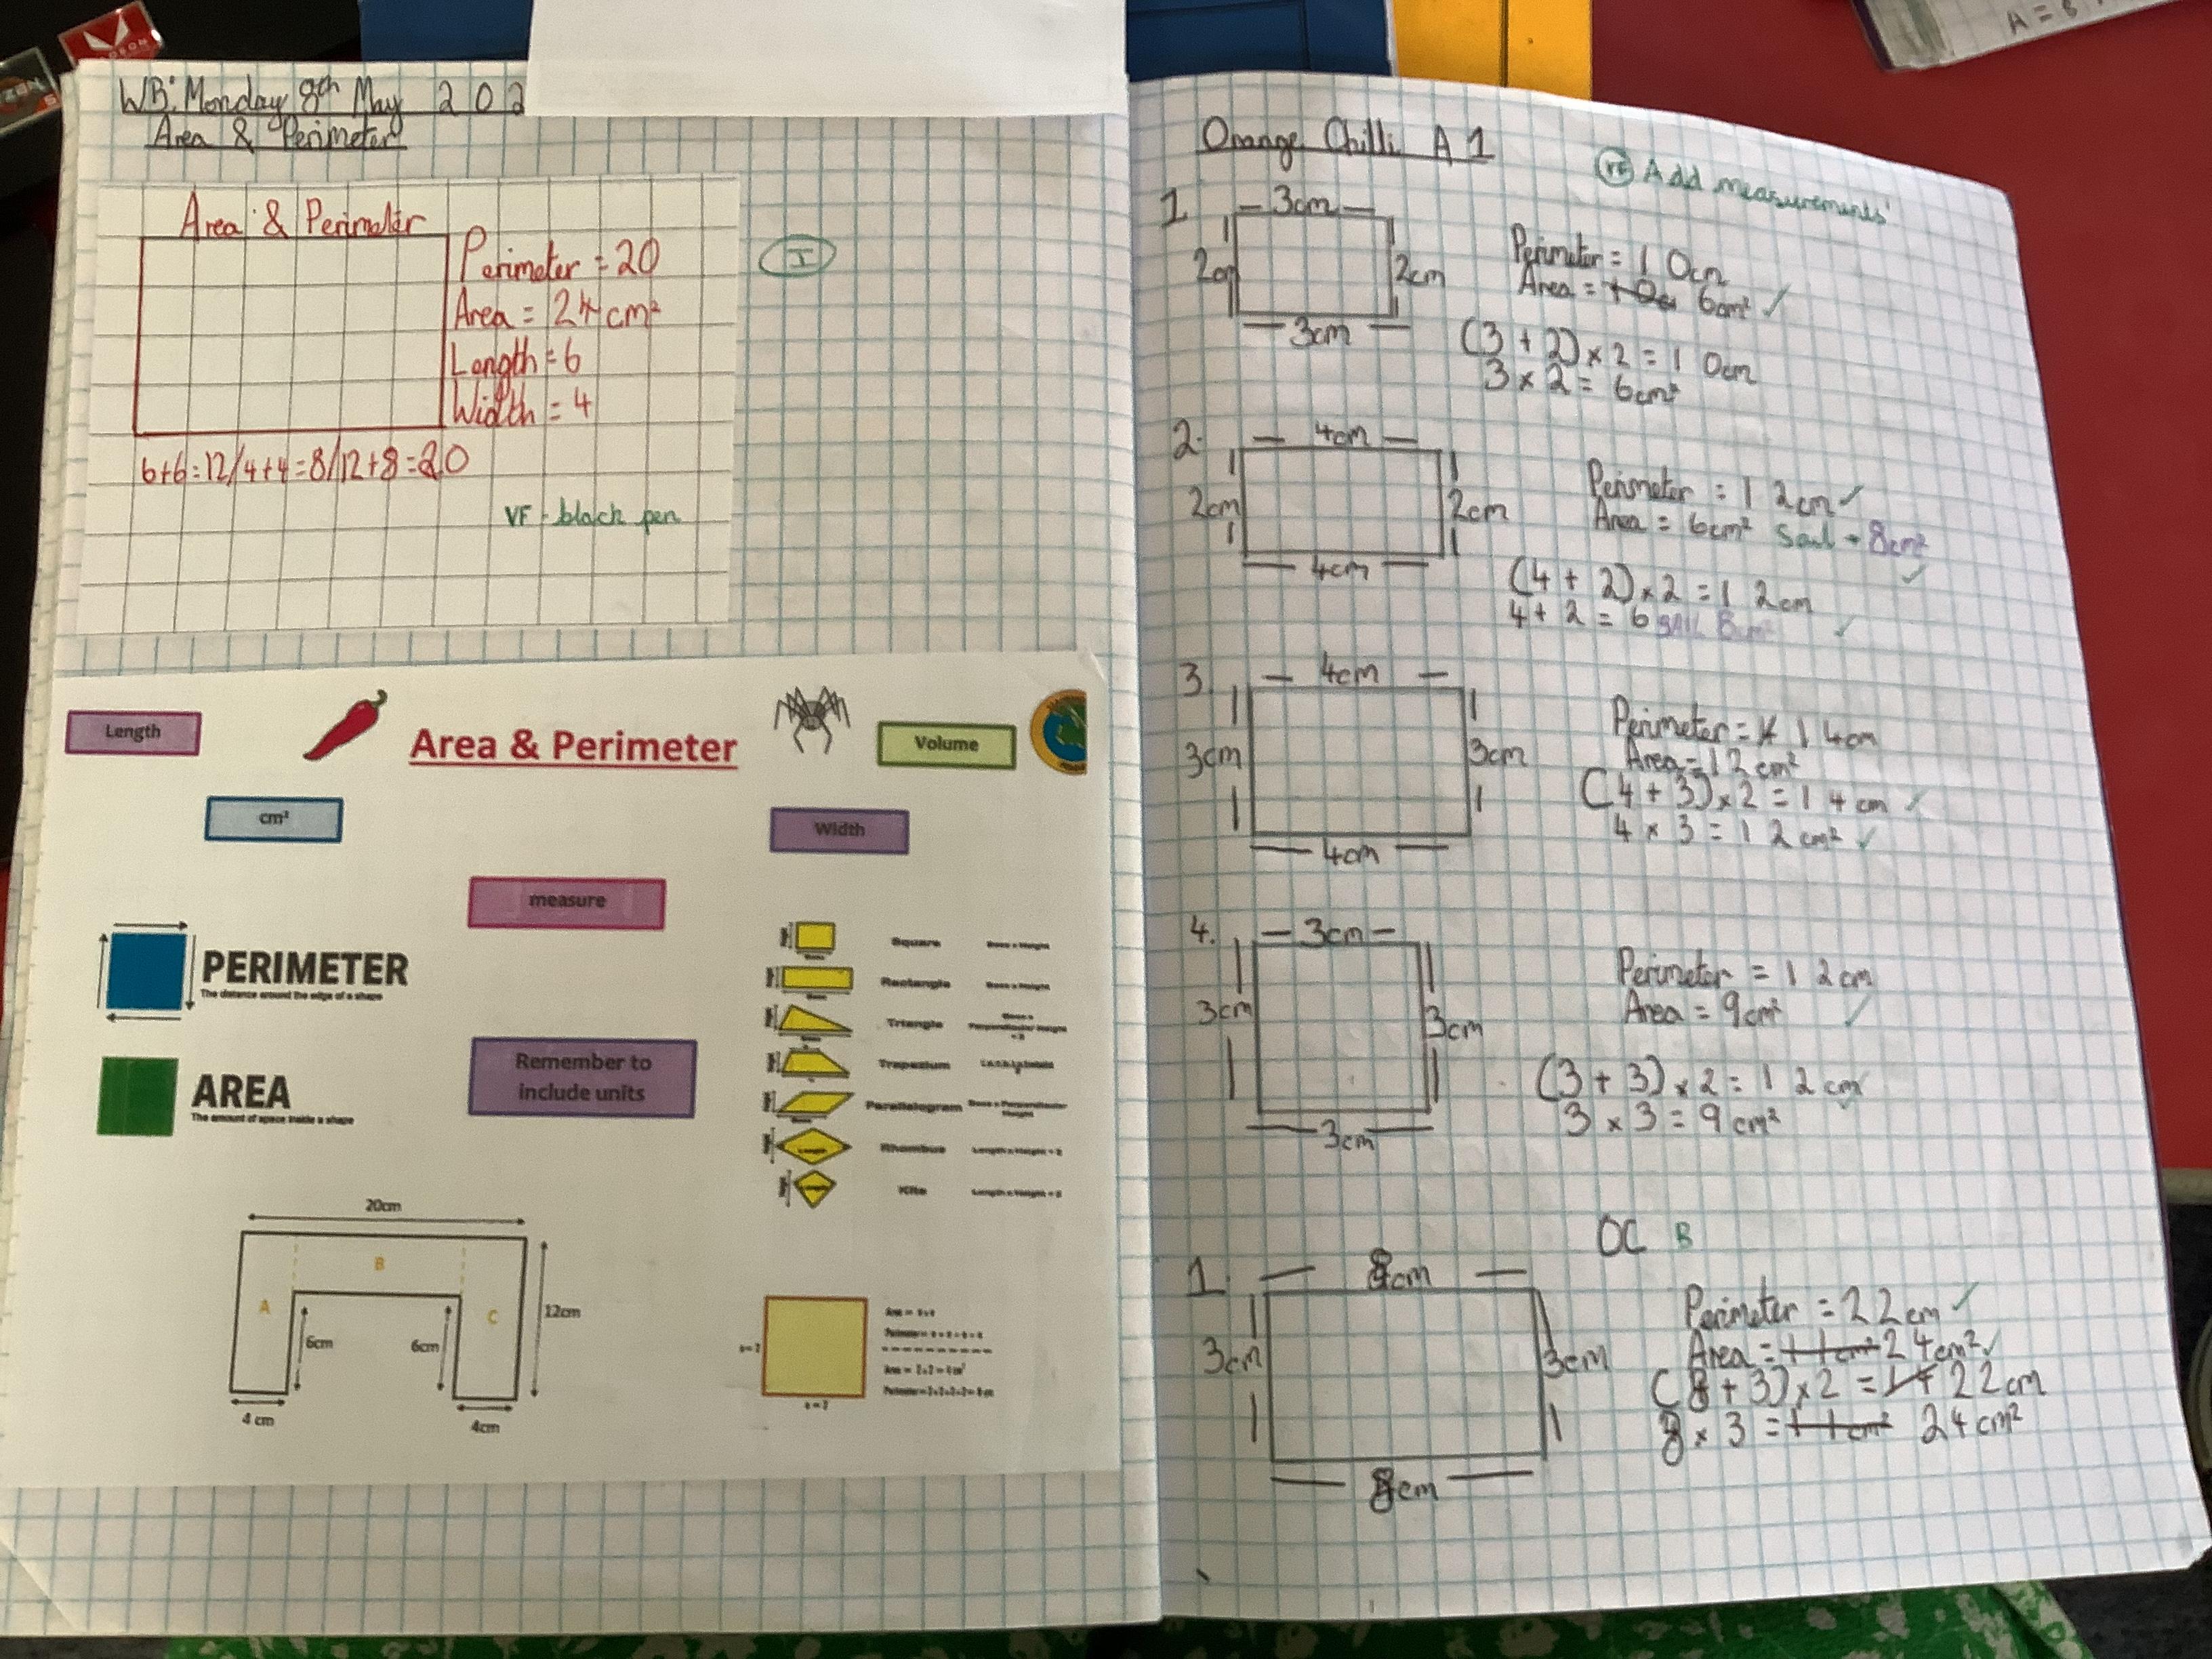 WB: Monday 8th May 202
Area & Perimeter
Area & Perimeter
Perimeter = 20
Area = 24cm²
Length = 6
Width = 4
6+6=12/4+4=8/12+8=20
VF - black pen
I
Length
Area & Perimeter
Volume
cm²
Width
measure
PERIMETER
The distance around the edge of a shape
AREA
The amount of space inside a shape
Remember to
include units
Square
Rectangle
Triangle
Trapezium
Parallelogram
Rhombus
Kite
20cm
A
B
C
12cm
6cm
6cm
4 cm
4cm
Orange Chilli A 1
VF Add measurements
1
3cm
2cm
2cm
3cm
Perimeter = 10cm
Area = 6cm² ✓
(3 + 2) × 2 = 10cm
3 × 2 = 6cm²
2.
4cm
2cm
2cm
4cm
Perimeter = 12cm ✓
Area = 6cm² 8cm²
(4 + 2) × 2 = 12cm ✓
4 + 2 = 6 8cm² ✓
3
4cm
3cm
3cm
4cm
Perimeter = 14cm
Area = 12cm²
(4 + 3) × 2 = 14cm ✓
4 × 3 = 12cm² ✓
4.
3cm
3cm
3cm
3cm
Perimeter = 12cm
Area = 9cm² ✓
(3 + 3) × 2 = 12cm
3 × 3 = 9cm² ✓
OC B
1.
8cm
3cm
3cm
8cm
Perimeter = 22cm ✓
Area = 11cm² 24cm² ✓
(8 + 3) × 2 = 14 22cm
8 × 3 = 11cm² 24cm²
A =